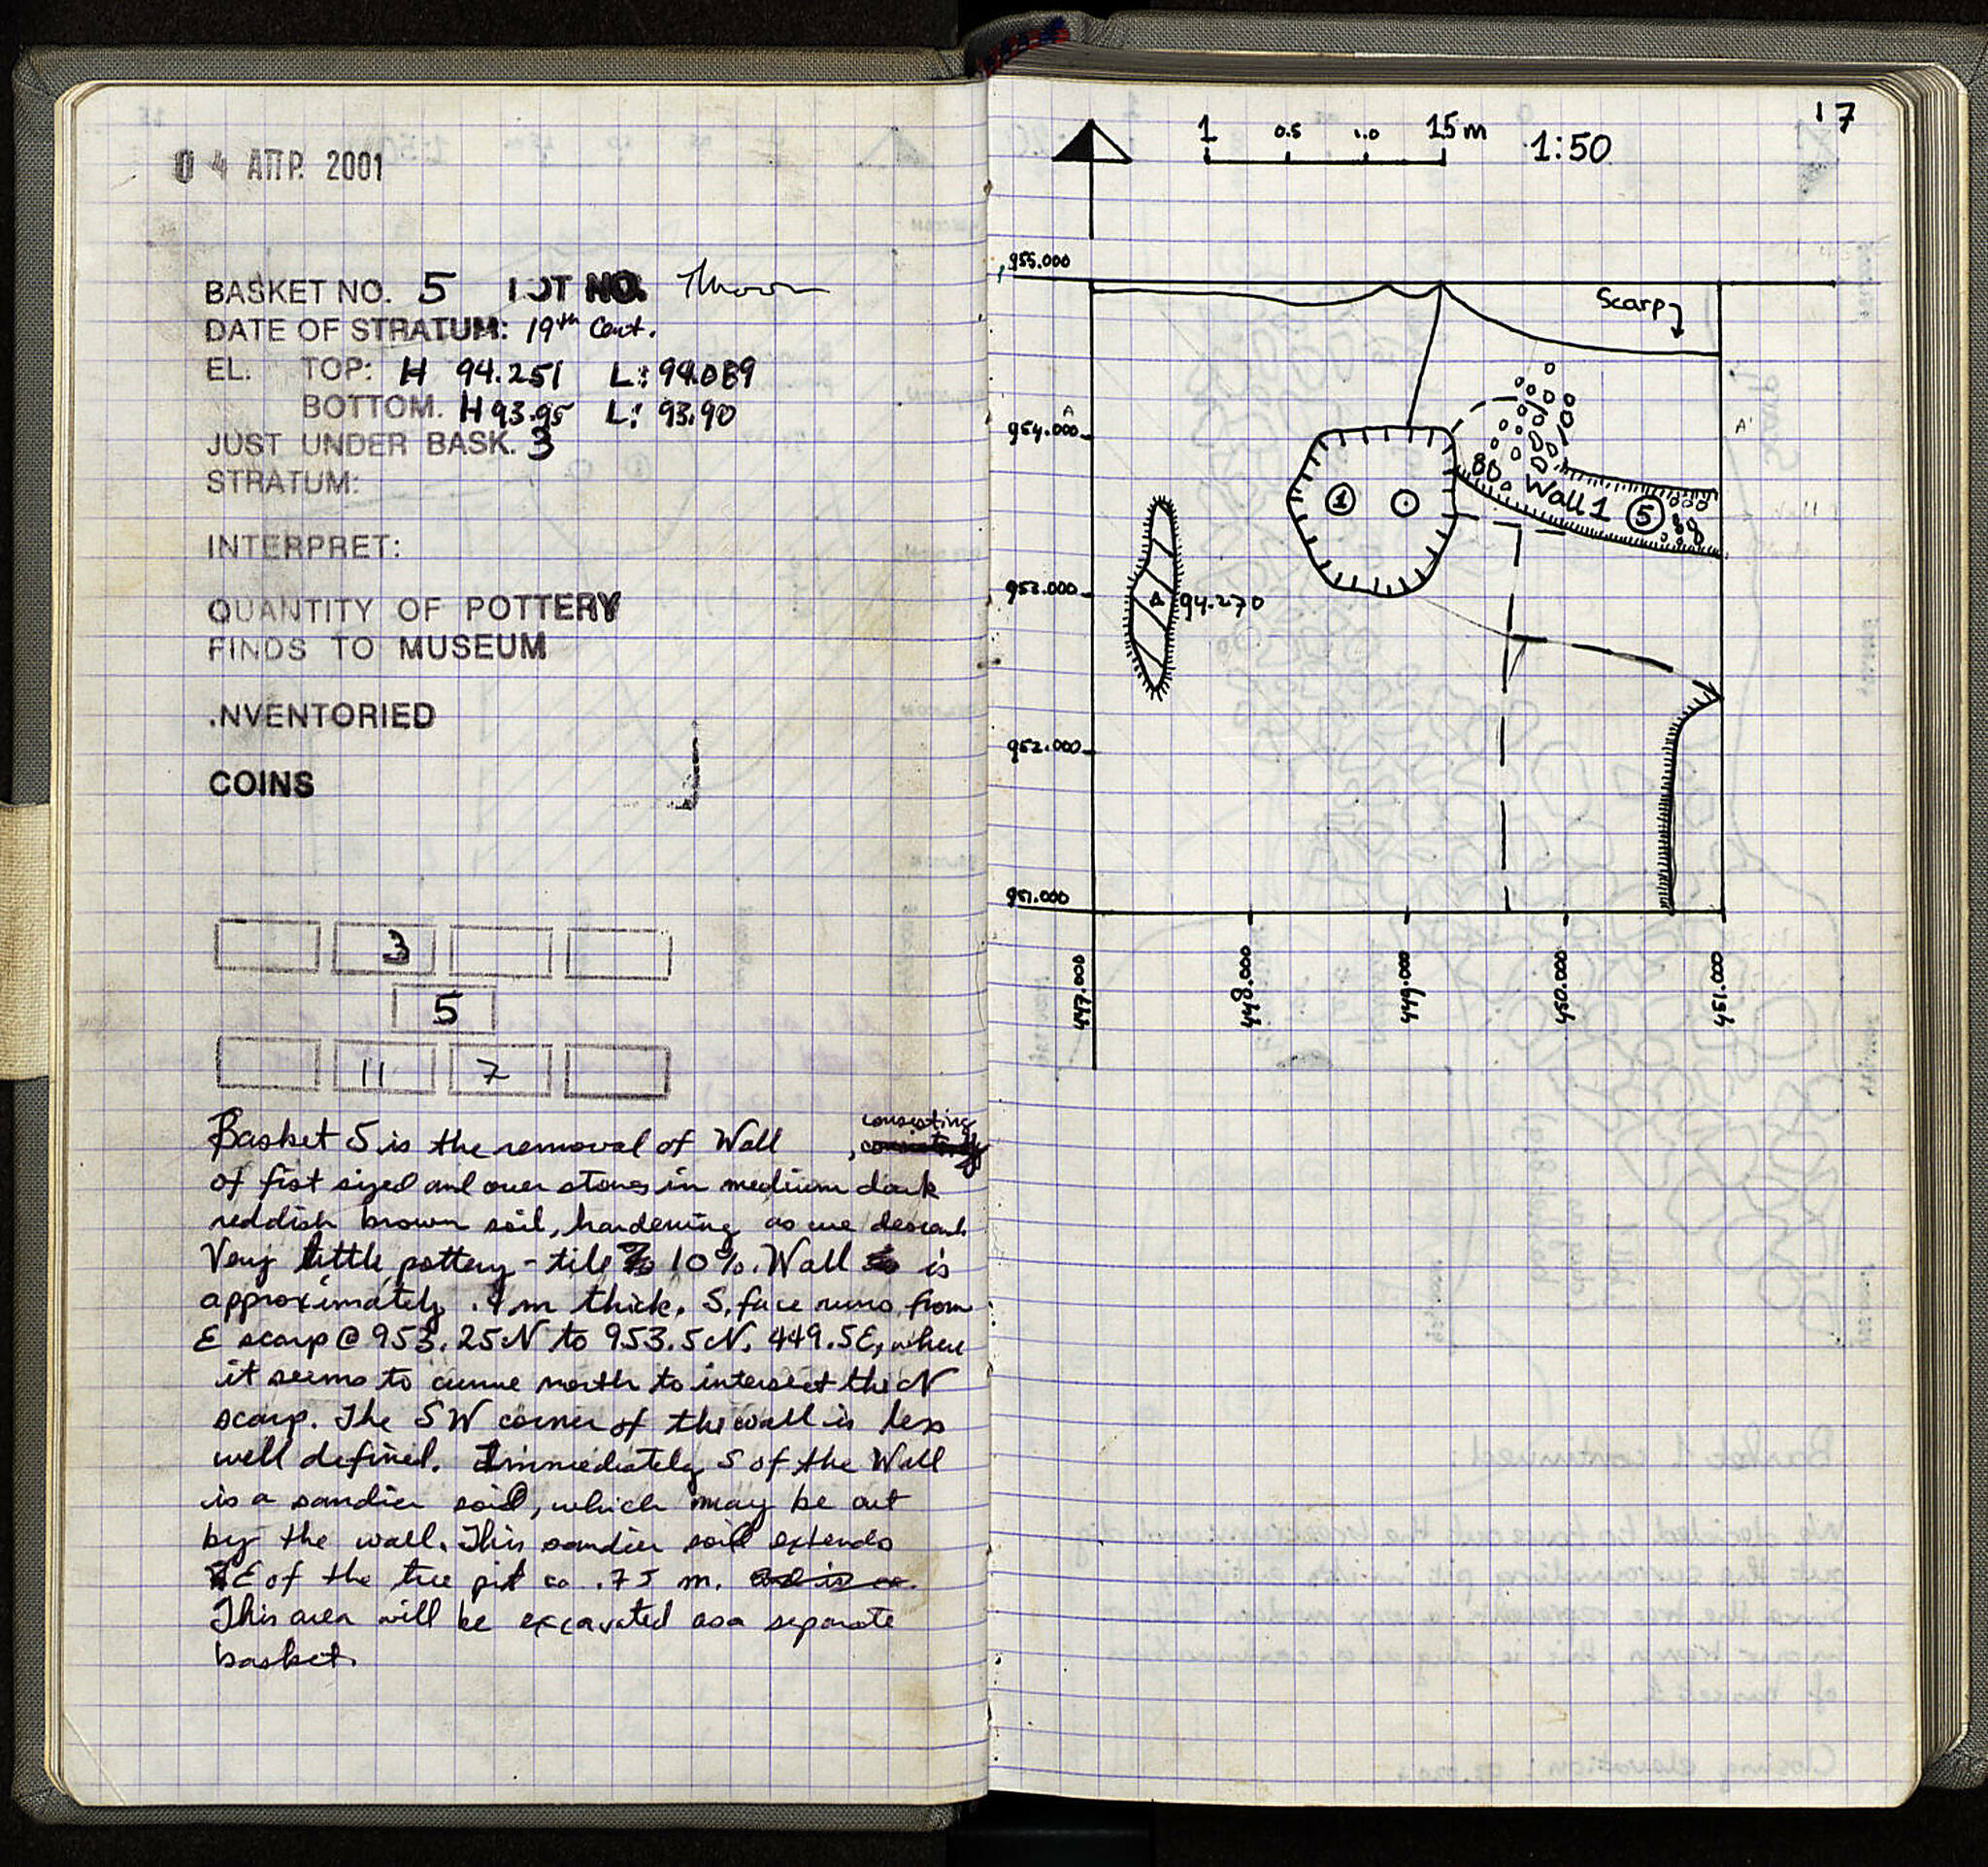 04 ΑΠΡ. 2001
BASKET NO. 5 LOT NO. Thrown
DATE OF STRATUM: 19th Cent.
EL. TOP: H 94.251 L: 94.089
BOTTOM. H 93.95 L: 93.90
JUST UNDER BASK. 3
STRATUM:
INTERPRET:
QUANTITY OF POTTERY
FINDS TO MUSEUM
.NVENTORIED
COINS
3
5
11 7
Basket 5 is the removal of Wall , consisting
of fist sized and over stones in medium dark
reddish brown soil, hardening as we descend.
Very little pottery - tile 10%. Wall is
approximately .4 m thick. S. face runs from
E scarp @ 953.25N to 953.5N, 449.5E, where
it seems to curve north to intersect the N
scarp. The SW corner of the wall is less
well defined. Immediately S of the Wall
is a sandier soil, which may be cut
by the wall. This sandier soil extends
E of the tree pit ca .75 m.
This area will be excavated as a separate
basket.
17
1 0.5 1.0 15m 1:50
955.000
Scarp
A
954.000
A'
1
Wall 1 5
953.000
94.270
952.000
951.000
447.000
448.000
449.000
450.000
451.000